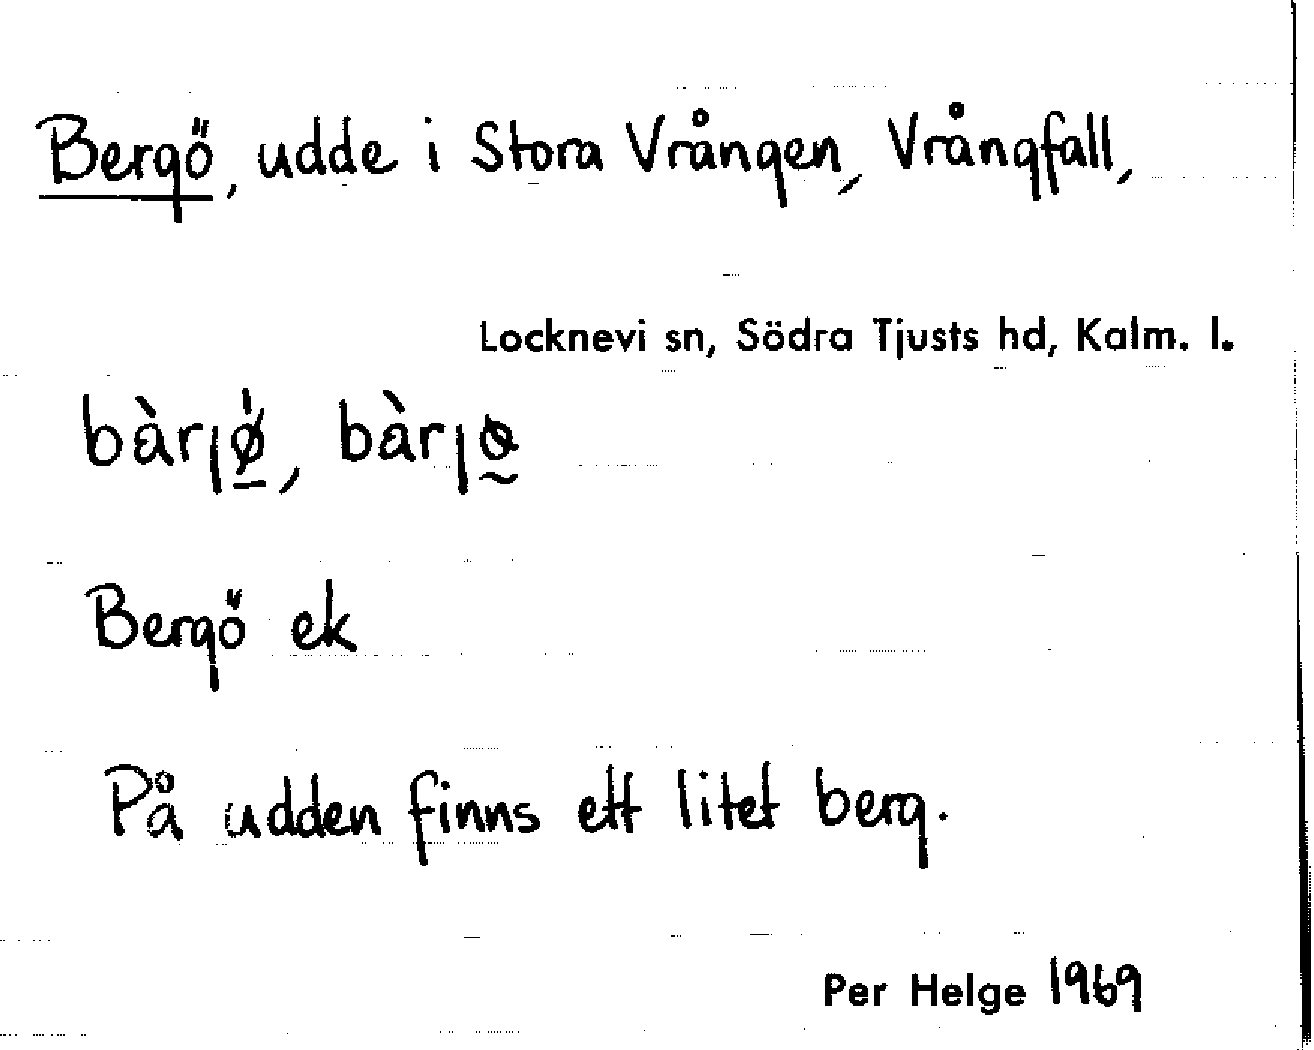 Bergö, udde i Stora Vrången, Vrångfall,
Locknevi sn, Södra Tjusts hd, Kalm. l.
bàrȷǿ̲, bàrȷø̰
Bergö ek
På udden finns ett litet berg.
Per Helge 1969